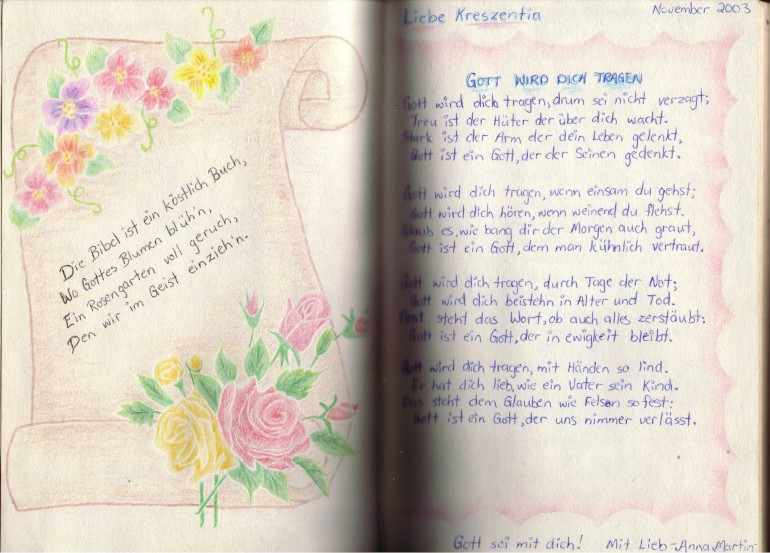 Die Bibel ist ein köstlich Buch,
Wo Gottes Blumen blüh'n,
Ein Rosengarten voll geruch,
Den wir im Geist einzieh'n.
Liebe Kreszentia
November 2003
GOTT WIRD DICH TRAGEN
Gott wird dich tragen, drum sei nicht verzagt;
Treu ist der Hüter der über dich wacht.
Stark ist der Arm der dein Leben gelenkt,
Gott ist ein Gott, der der Seinen gedenkt.
Gott wird dich tragen, wenn einsam du gehst;
Gott wird dich hören, wenn weinend du flehst.
Glaub es, wie bang dir der Morgen auch graut,
Gott ist ein Gott, dem man kühnlich vertraut.
Gott wird dich tragen, durch Tage der Not;
Gott wird dich beistehn in Alter und Tod.
Fest steht das Wort, ob auch alles zerstäubt;
Gott ist ein Gott, der in ewigkeit bleibt.
Gott wird dich tragen, mit Händen so lind.
Er hat dich lieb, wie ein Vater sein Kind.
Das steht dem Glauben wie Felsen so fest:
Gott ist ein Gott, der uns nimmer verlässt.
Gott sei mit dich! Mit Lieb - Anna Martin -